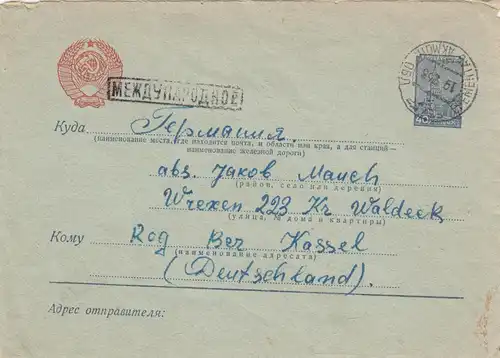 МЕЖДУНАРОДНОЕ
Куда Германия.
(наименование места, где находится почта, и области или края, а для станций —
наименование железной дороги)
abs. Jakob Mauch
(район, село или деревня)
Wrexen 223 Kr Waldeck
(улица, № дома и квартиры)
Кому Rog Bez Kassel
(наименование адресата)
(Deutschland)
Адрес отправителя: